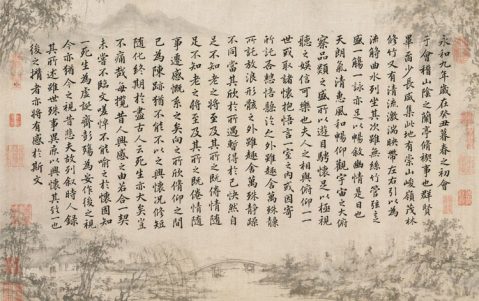 永和九年歲在癸丑暮春之初會
于會稽山陰之蘭亭脩稧事也群賢
畢至少長咸集此地有崇山峻嶺茂林
修竹又有清流激湍映帶左右引以為
流觴曲水列坐其次雖無絲竹管弦之
盛一觴一詠亦足以暢叙幽情是日也
天朗氣清惠風和暢仰觀宇宙之大俯
察品類之盛所以遊目騁懷足以極視
聽之娛信可樂也夫人之相與俯仰一
世或取諸懷抱悟言一室之內或因寄
所託之外雖趣舍萬殊靜
所託放浪形骸之外雖趣舍萬殊靜躁
不同當其欣於所遇暫得於己快然自
足不知老之將至及其所之既倦情隨
足不知老之將至及其所之既倦情隨
事遷感慨係之矣向之所欣俯仰之間
已為陳跡猶不能不以之興懷況修短
隨化終期於盡古人云死生亦大矣豈
不痛哉每攬昔人興感之由若合一契
未嘗不臨文嗟悼不能喻之於懷固知
一死生為虛誕齊彭殤為妄作後之視
今亦猶今之視昔悲夫故列叙時人錄
其所述雖世殊事異所以興懷其致一也
後之攬者亦將有感於斯文